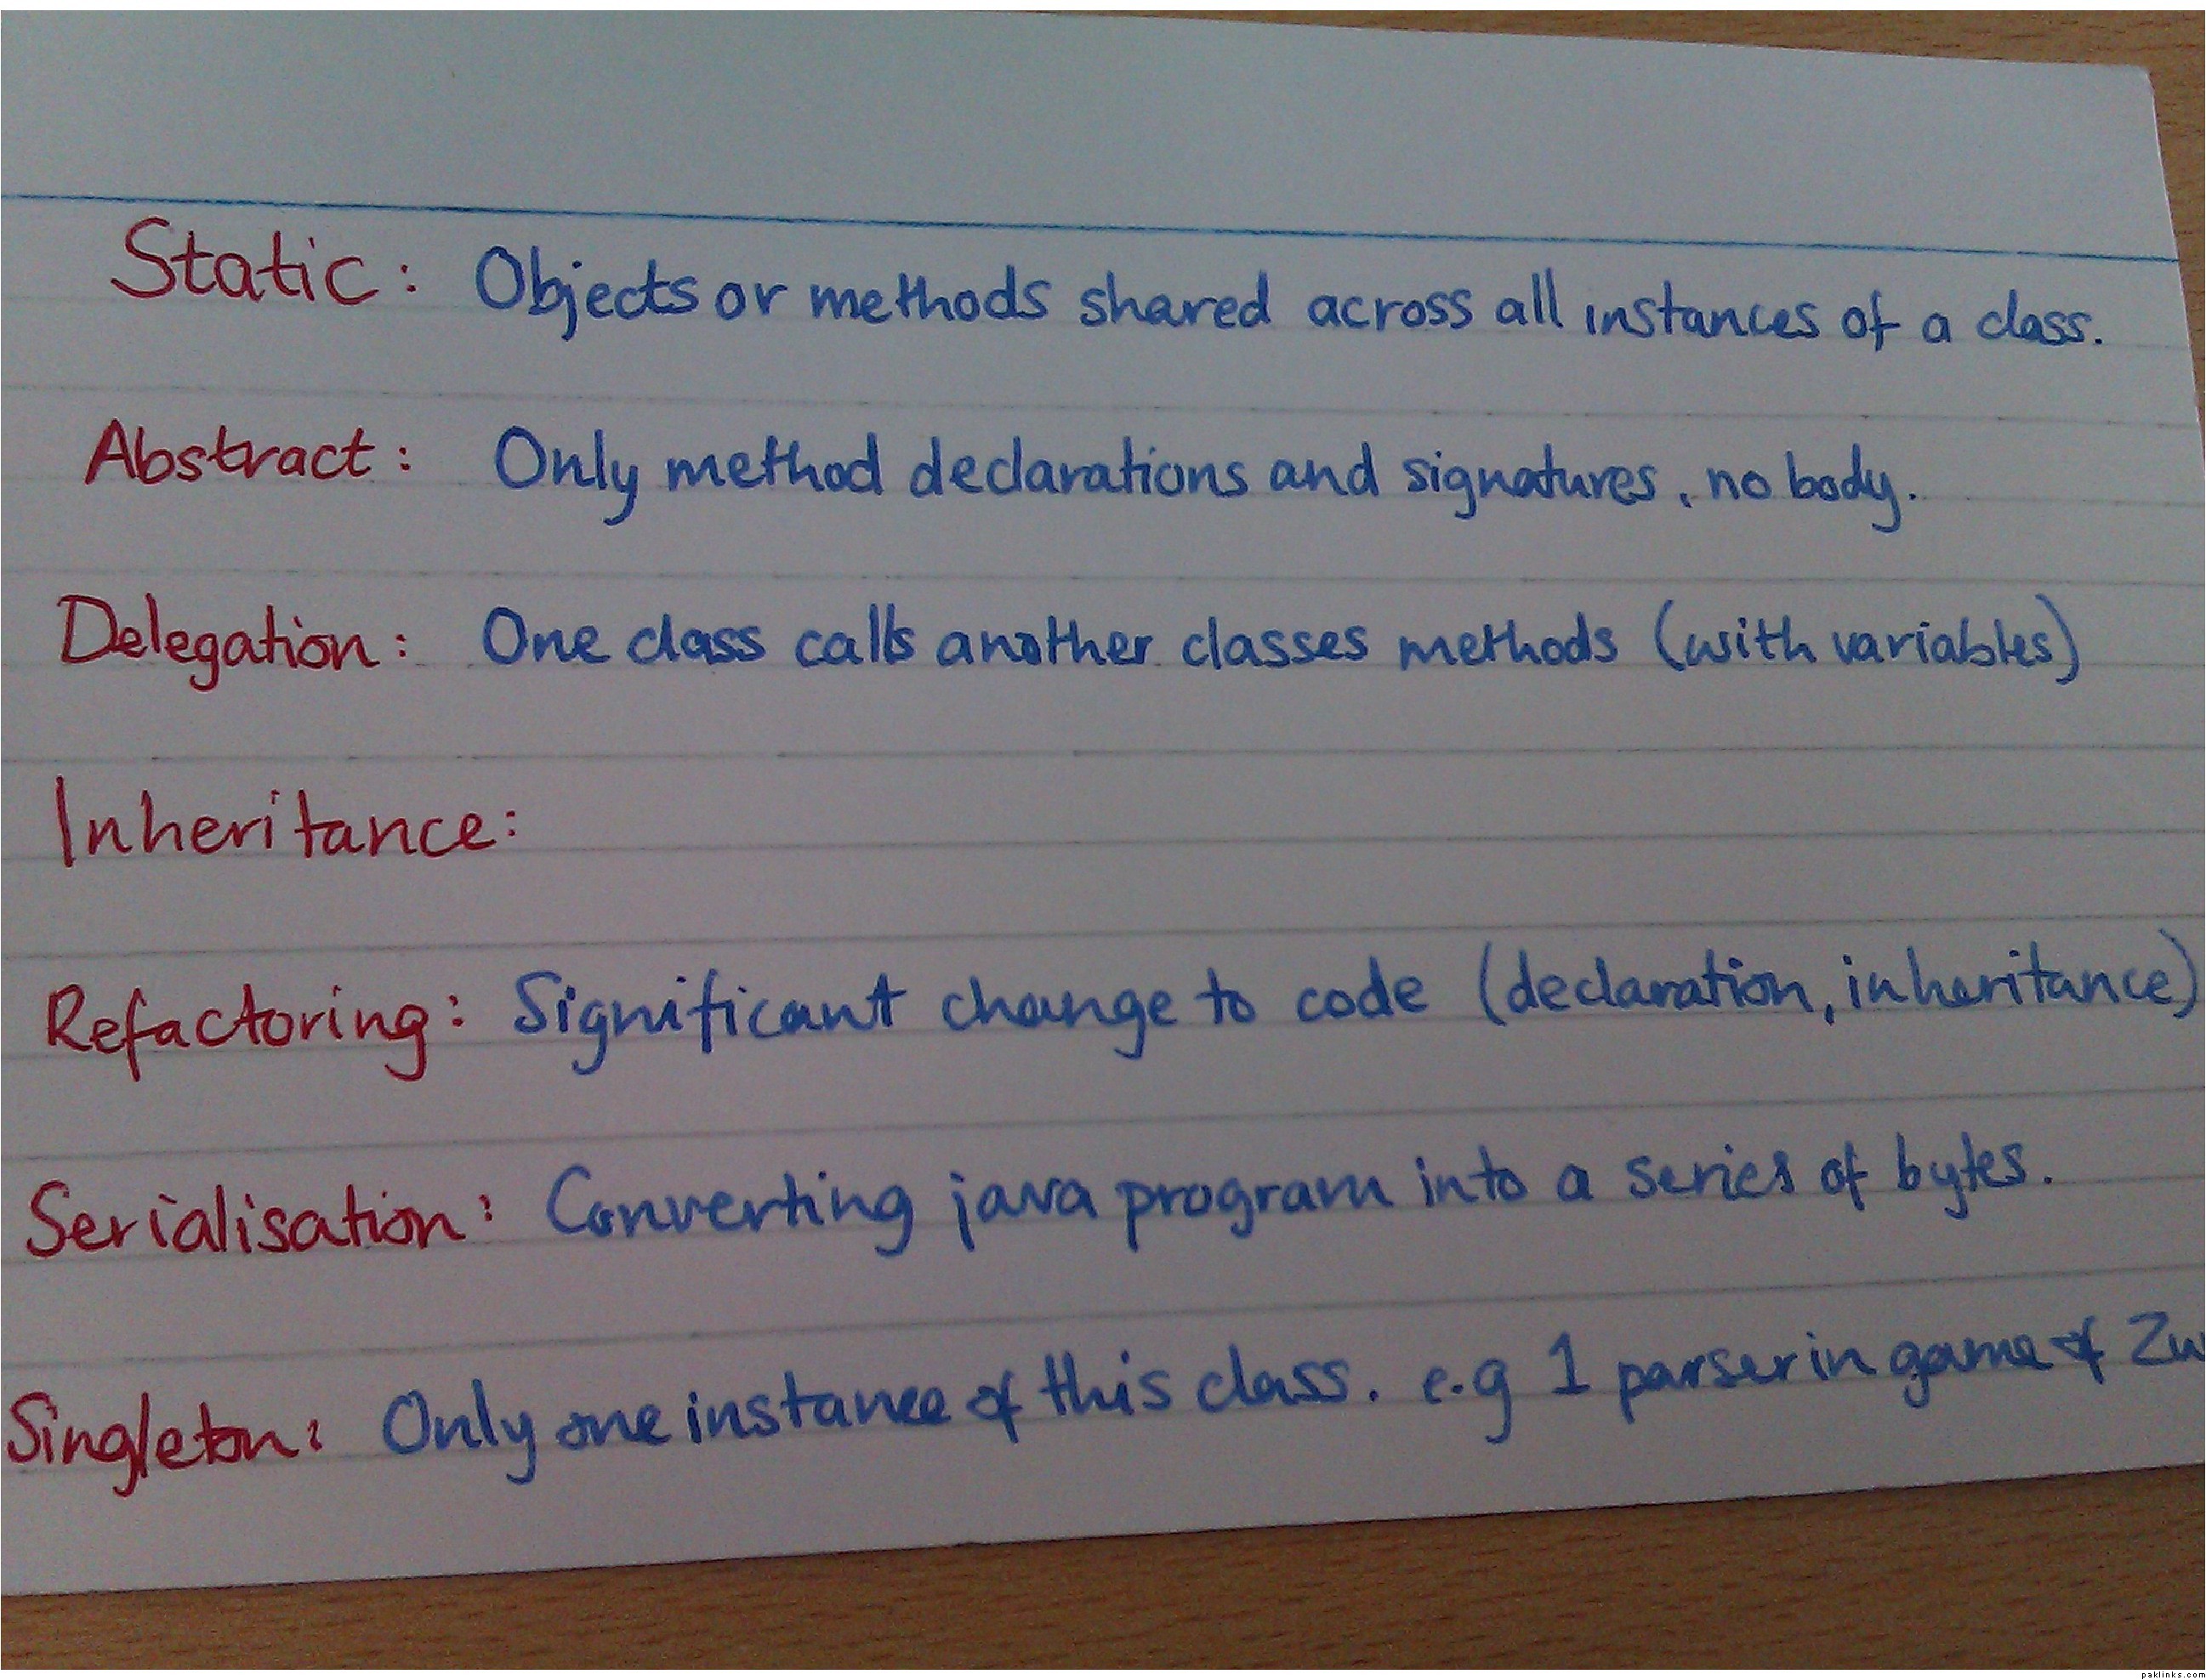 Static: Objects or methods shared across all instances of a class.
Abstract: Only method declarations and signatures, no body.
Delegation: One class calls another classes methods (with variables)
Inheritance:
Refactoring: Significant change to code (declaration, inheritance)
Serialisation: Converting java program into a series of bytes.
Singleton: Only one instance of this class. e.g 1 parser in game of Zu
paklinks.com